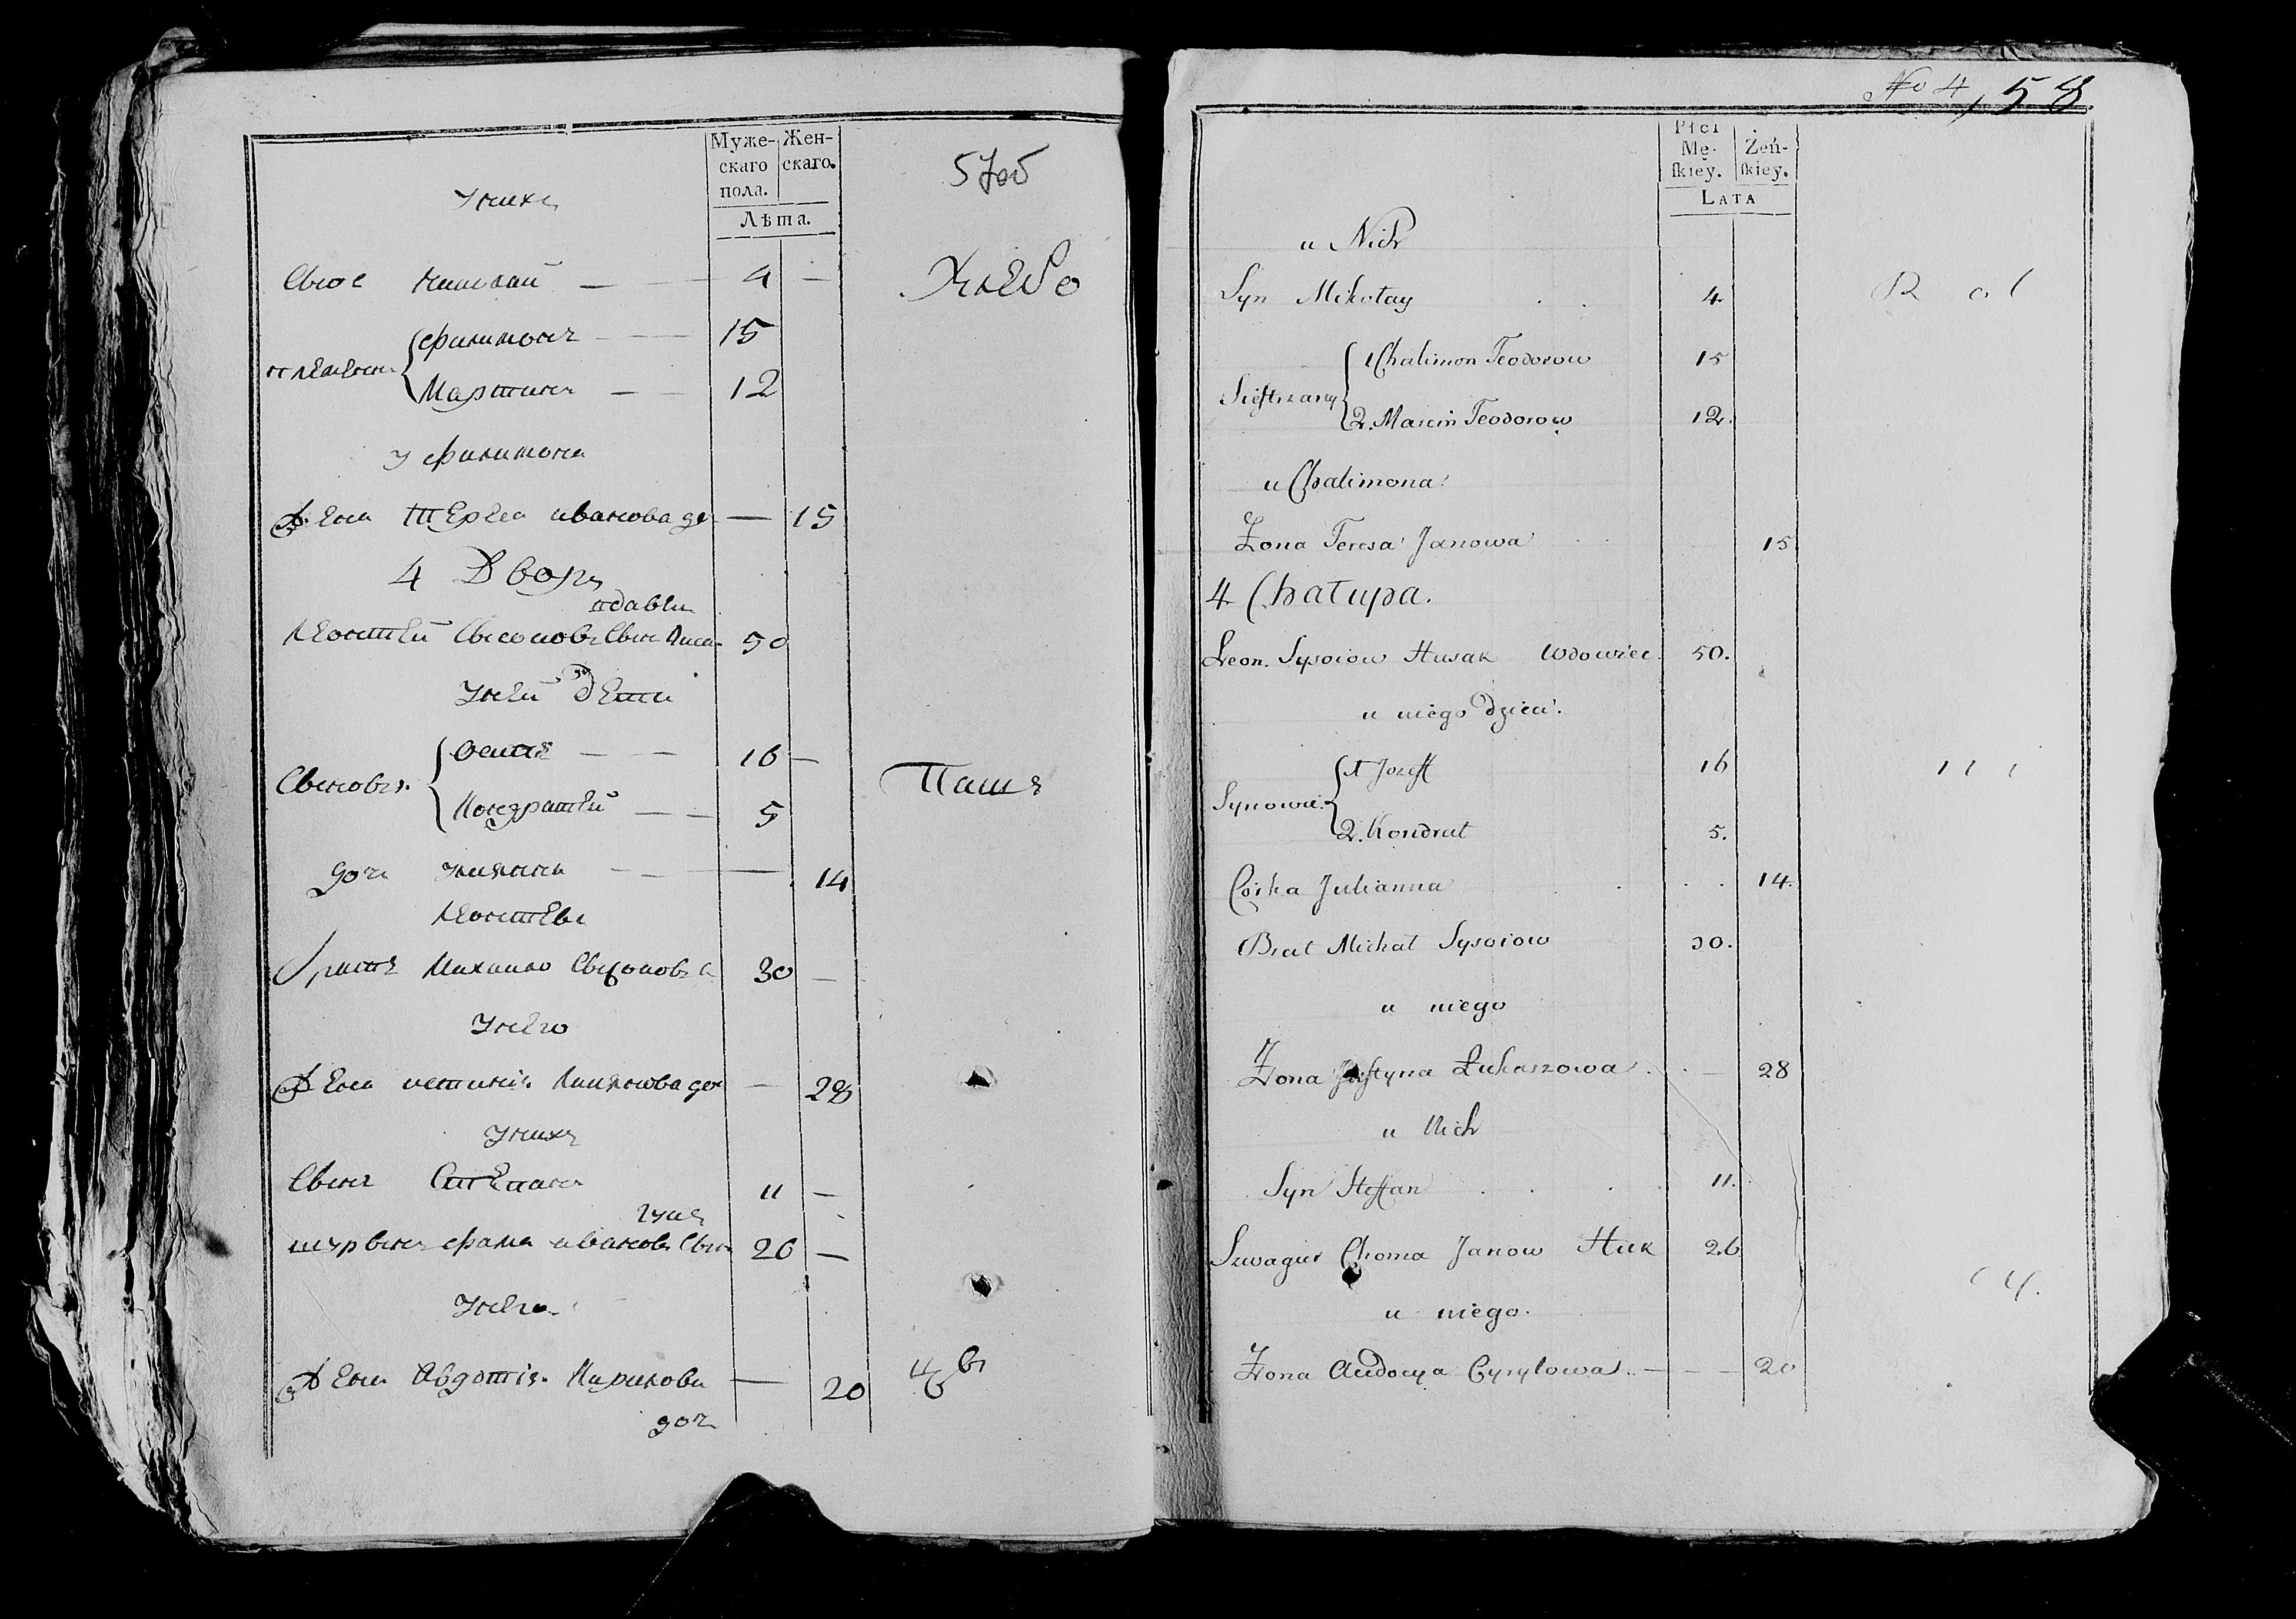 Муже-
скаго
пола.
Жен-
скаго.
Лѣта.
5 Уоб
У нихъ
Сынъ Николай — 4 —
Хлебо
племен {Филимонъ — 15
Мартинъ — 12
У Филимона
Жена Терея иванова до — 15
4 Дворъ
вдавеи
Леонтей Сысоювъ Сынъ 50
У ней дети
Сыновья {Осипъ — 16 —
Кондратей — 5
Пашъ
дочь улияна — 14
Леонтева
Братъ Михаило Сысоювъ с 30 —
У него
Жена устиния Лукянова до — 28
У нихъ
Сынъ Степанъ 11 —
гукъ
шуринъ фома ивановъ Сынъ 26 —
У него
Жена Авдотiя Кирилова — 20
доч
№ 4, 58
Płci
Mę-
ſkiey.
Żeń-
ſkiey.
LATA
u Nich
Syn Mikołay 4
R o l
Sieſtrzany {1 Chalimon Teodorow 15
2. Marcin Teodorow 12.
u Chalimona
Żona Teresa Janowa 15
4 Chałupa.
Leon. Sysoiow Husak Wdowiec. 50.
u niego dzieci.
Synowie {1 Jozeff 16
2. Kondrat 5.
Córka Julianna 14.
Brat Michał Sysoiow 30.
u niego
Żona Juſtyna Łukaszowa — 28
u Nich
Syn Steffan 11.
Szwagier Choma Janow Huk 26
u niego.
Żona Audocya Cyryłowa — 20